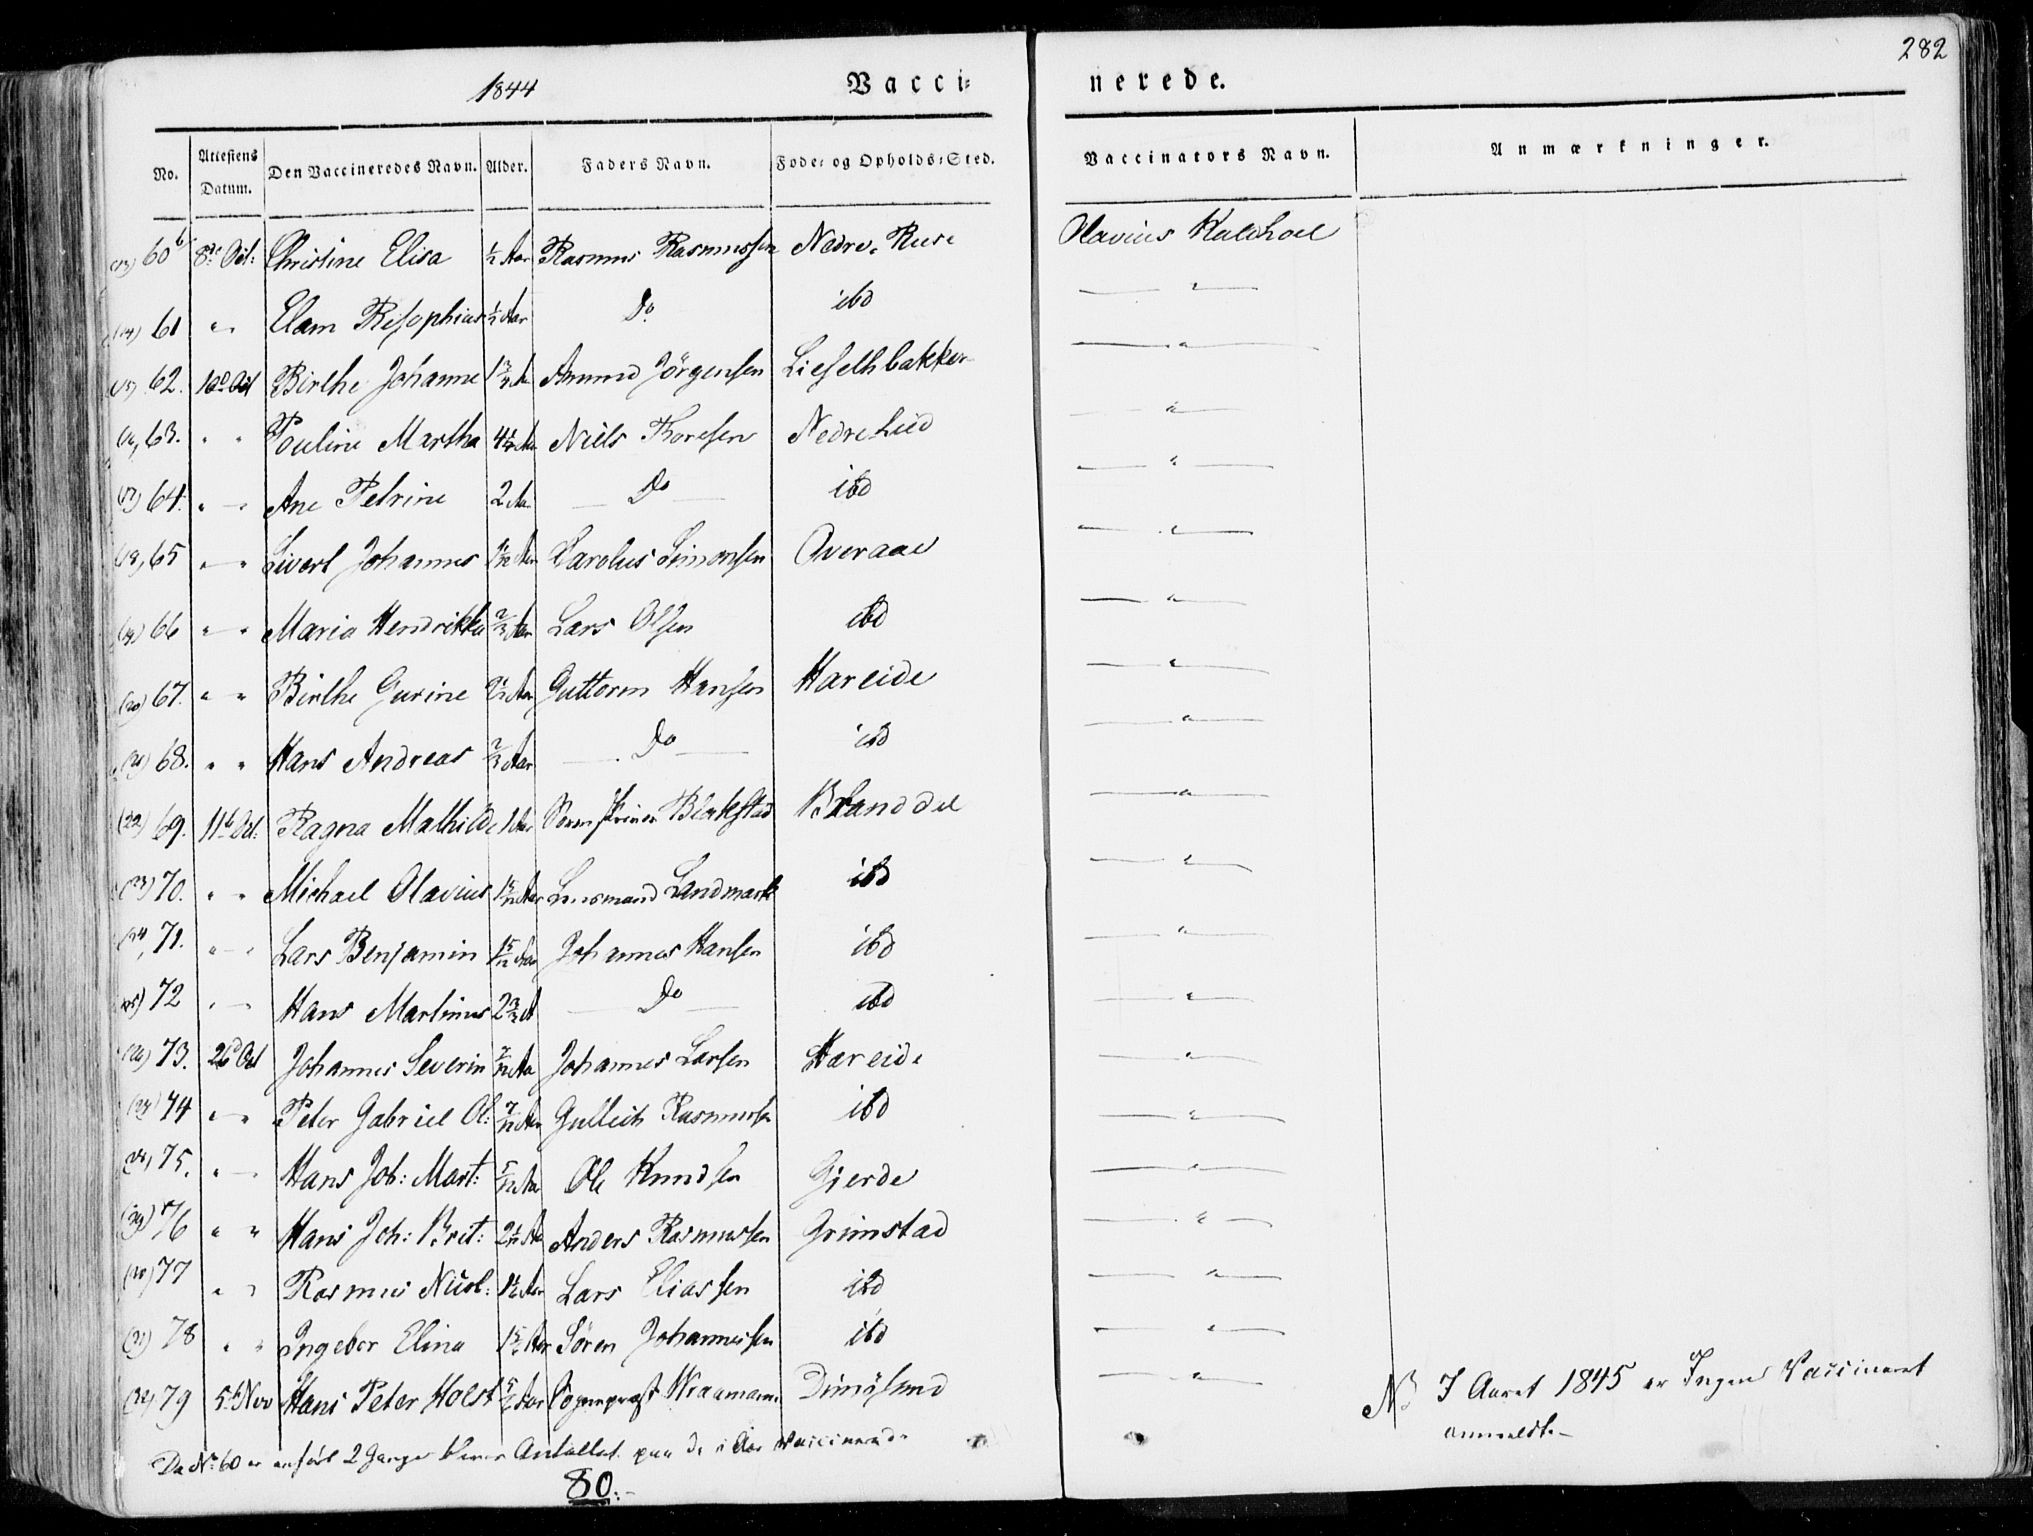 282
1844 Vacci= nerede.
No. Attestens Datum. Den Vaccineredes Navn. Alder. Faders Navn. Føde= og Opholds=Sted. Vaccinators Navn. Anmærkninger.
60 b 8de Oct: Christine Elisa ½ Aar Rasmus Rasmussen Nedre Olavius
(14) 61 " " Elam ½ Aar Do ibd — " —
62. 10de Oct Birthe Johanne Amund Jörgensen — " —
63. " " Pouline Martha Niels Thoresen — " —
64. " — Ane Petrine 2 Aar — Do — ibd — " —
65 " — " Sivert Johannes Carolus Simonsen Overaae — " —
66 " — " Maria Hendrikke 2/3 Aar Lars Olsen ibd — " —
(20) 67. " " Birthe Gurine Guttorm Hansen Hareide — " —
(21) 68. " " Hans Andreas 2/3 Aar — Do — ibd — " —
(22) 69. 11te Oct: Ragna Mathilde 1 Aar Blakstad — " —
(23) 70. " " Michael Olavius 1 5/12 Aar Lensmand Landmark ibd — " —
(24) 71. " — " Lars Benjamin 1 5/12 Aar Johannes Hansen ibd — " —
(25) 72 " — Hans Martinus — Do — ibd — " —
(26) 73. 26d Oct Johannes Severin Johannes Larsen Hareide — " —
(27) 74 " — " Peter Gabriel Ol: 7/12 Aar Gulleik Rasmussen ibd — " —
(28) 75. " — Hans Joh: Mart: 5/12 Aar Ole Knudsen Gjerde — " —
(29) 76 " " Hans Joh: Anders Rasmussen Grimstad — " —
(30) 77 " " Rasmus Nicol: Lars Eliassen ibd — " —
(31) 78 " " Ingebor Elina Sören Johannessen ibd — " —
(32) 79 5te Nov Hans Peter Holst Sogneprest Dimösund — " —
NB I Aaret 1845 er Ingen Vaccineret
anmeldt. —
Da No 60 er anfört 2 Gange bliver Antallet paa de i Aar Vaccinerede
80. —